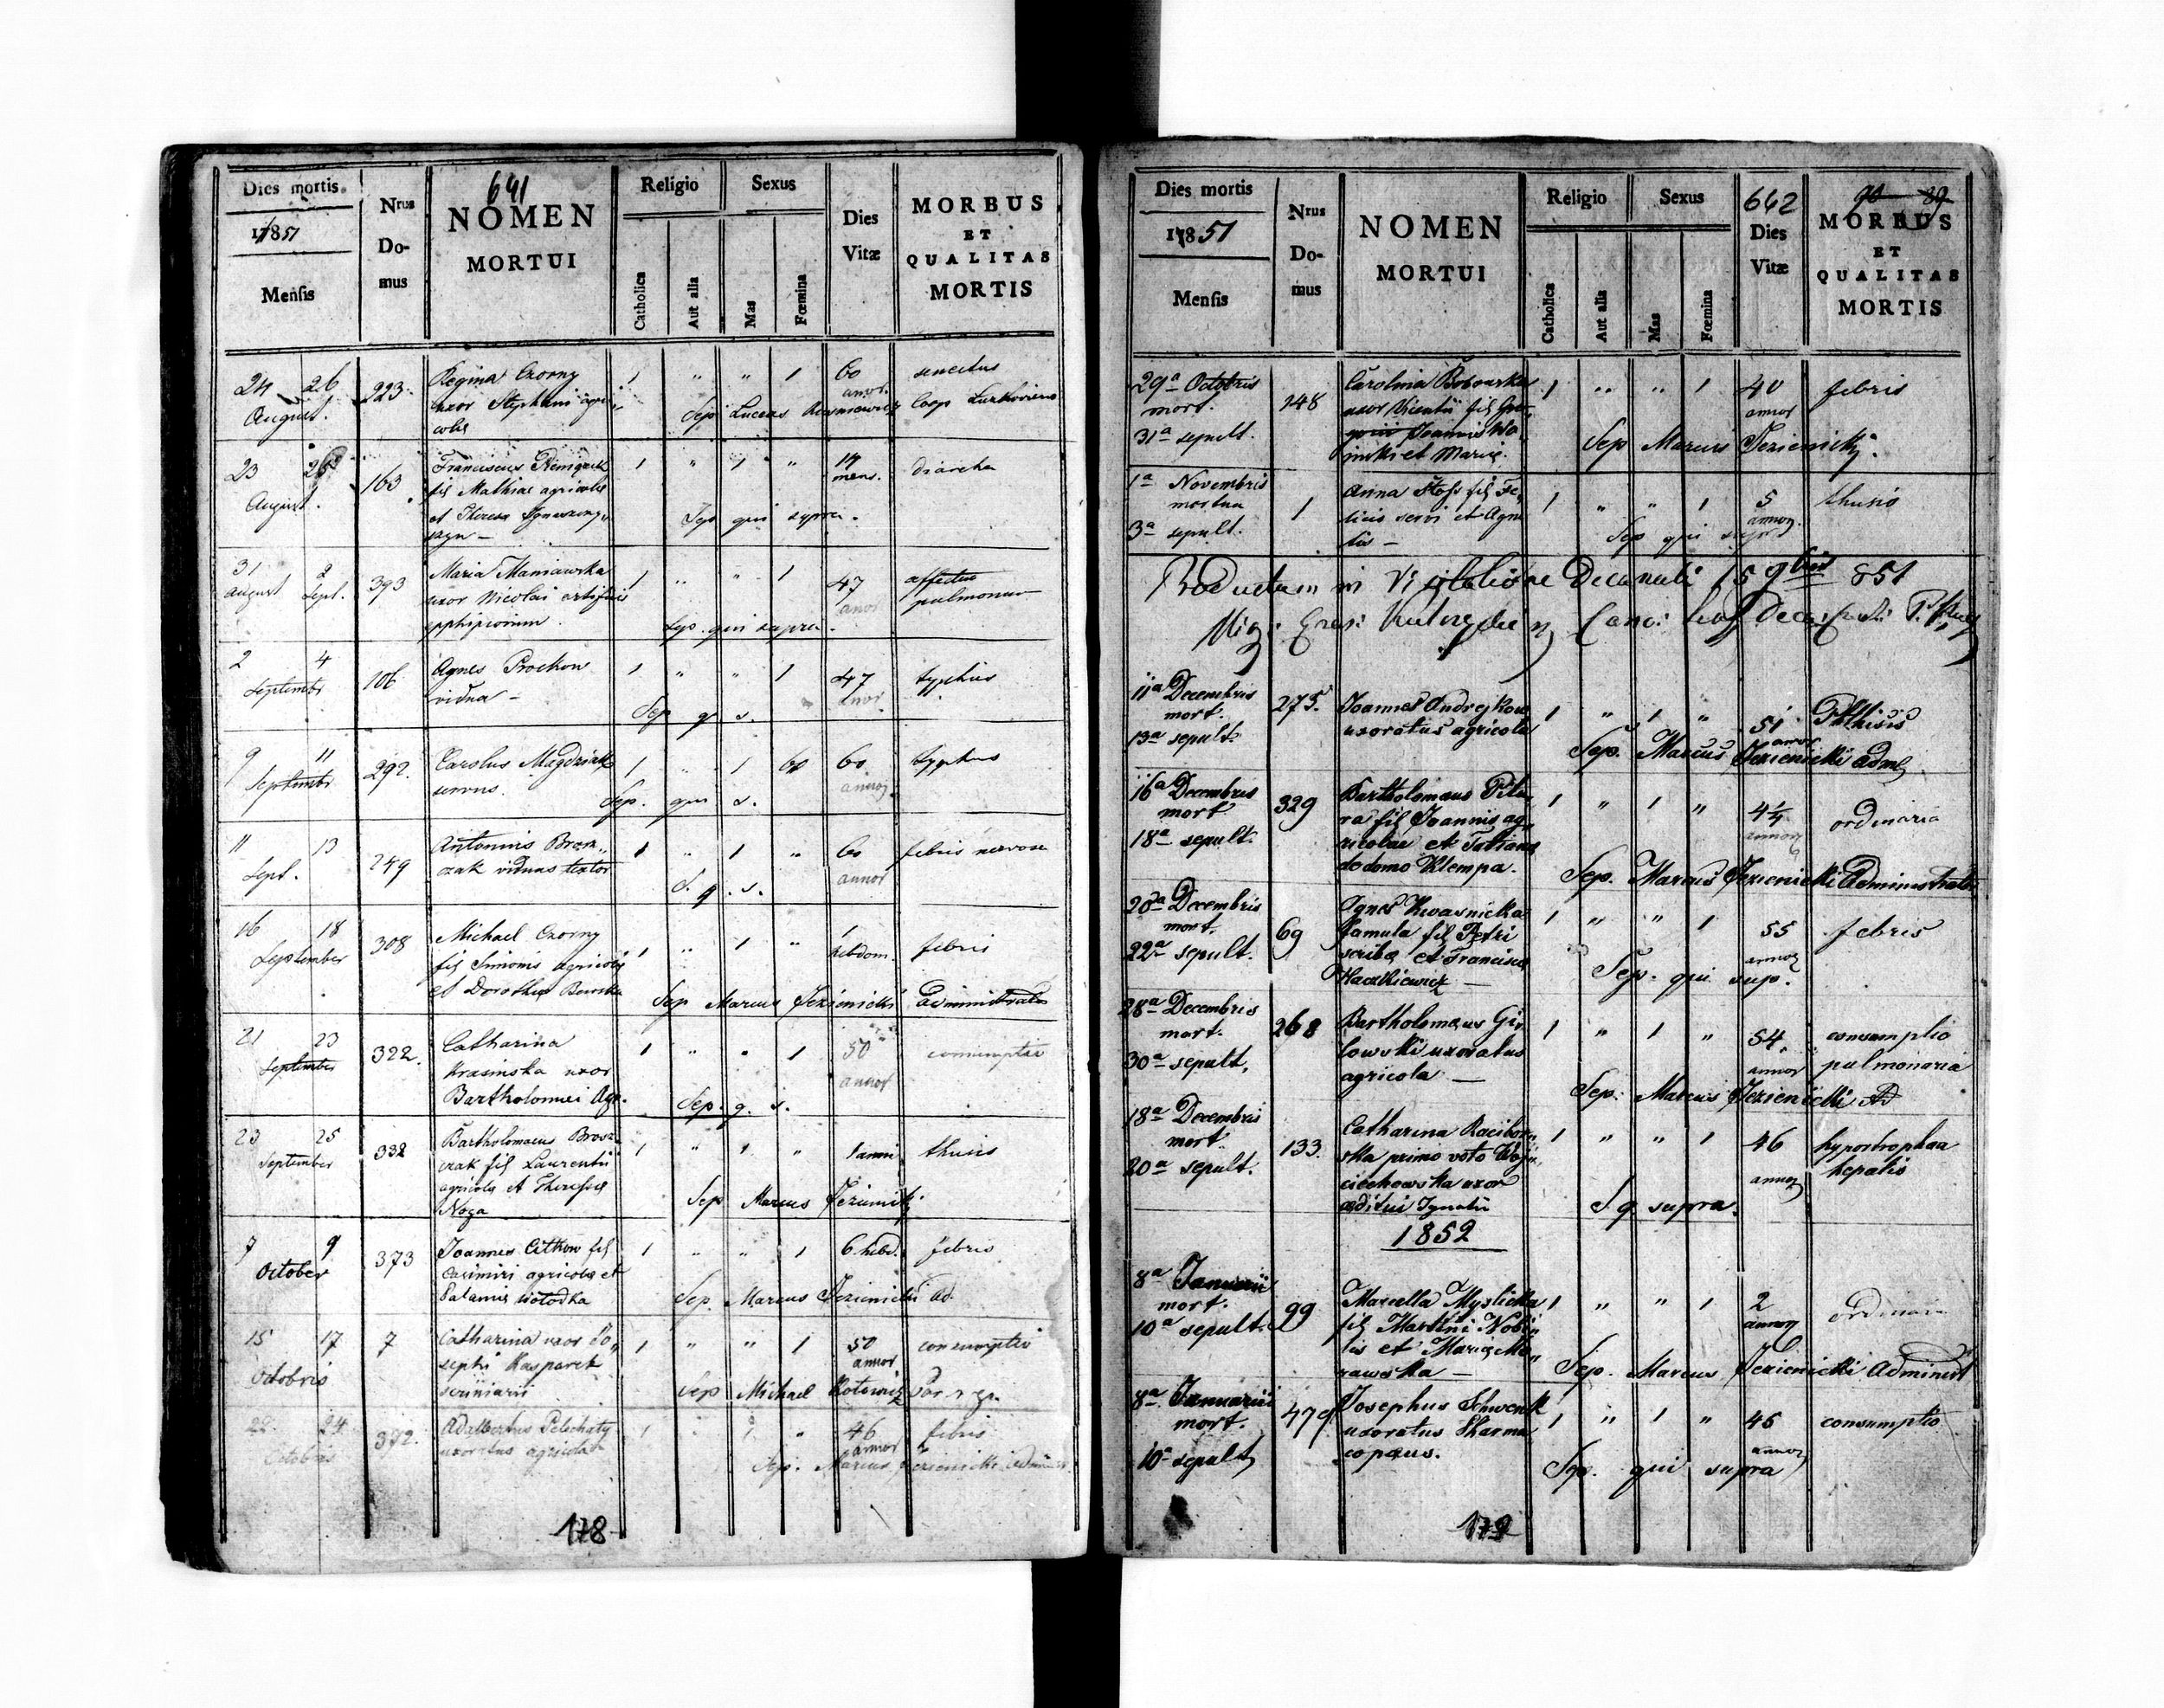 641
Dies mortis
1851
Mensis
Nrus
Do-
mus
NOMEN
MORTUI
Religio
Catholica
Aut alia
Sexus
Mas
Fœmina
Dies
Vitæ
MORBUS
ET
QUALITAS
MORTIS
24 26
August.
223.
Regina Czorny
uxor Stephani agri„
colæ
1 „ „ 1
60
annor.
senectus
Sep Lucas Coop
23 25
August.
163
Franciscus
fil Mathiae agricolæ
et Theresa
1 „ 1 „
mens.
diarrhea
Sep qui supra.
31 2
August Sept.
393
Maria Maniawska
uxor Nicolai artificis
ephipiorum
1 „ „ 1
47
annor
affectio
pulmonum
Sep. qui supra.
2 4
Septembr
106
Agnes Prockow
vidua –
1 „ „ 1
47
annor.
typhus
Sep q s.
9 11
Septembr
292.
Carolus Magdziak
servus.
1 „ 1
60
annor.
typhus
Sep. qui s.
11 13
Sept.
249
Antonius Brosz„
czak viduus textor
1 „ 1 „
60
annor
febris nervosa
S. q. s.
16 18
September
308
Michael Czorny
fil Simonis agricolæ
et Dorothea
1 „ 1 „
1
hebdom.
febris
Sep Marcus Jezienicki Administrator
21 23
September
322.
Catharina
Krasinska uxor
Bartholomei Agr.
1 „ „ 1
50
annor
consumptio
Sep. q. s.
23 25
September
332
Bartholomaeus Brosz„
czak fil Laurentii
agricola et Theresia
Noga
1 „ 1 „
1 anni
thusis
Sep Marcus Jezienicki
7 9
October
373
Joannes Cithow fil
Casimiri agricolæ et
Salamia
1 „ „ 1
6 hebd.
febris
Sep. Marcus Jezienicki Ad.
15 17
Octobris
7
Catharina uxor Jo„
sephi Kasparek
scriniarii
1 „ „ 1
50
annor
consumptio
Sep Michael Kotowicz Par r gr.
22 24
Octobris
392.
Adalbertus Pelechaty
uxoratus agricola
1 „ 1 „
46
annor
febris
Sep. Marcus Jezienicki Admin
178
Dies mortis
1851
Mensis
Nrus
Do-
mus
NOMEN
MORTUI
Religio
Catholica
Aut alia
Sexus
Mas
Fœmina
662
Dies
Vitæ
90 89
MORBUS
ET
QUALITAS
MORTIS
29a Octobris
mort.
31a sepult.
148
Carolina Bobowska
uxor Vicentii fil
Joannis Wo„
et Mariæ.
1 „ „ 1
40
annor
febris
Sep Marcus Jezienicki.
1a Novembris
mortua
3a sepult.
1
Anna Stoss fil Fe„
licis servi et Agne
tis –
1 „ „ 1
5
annor.
thusis
Sep qui supra
Productum in Visitatione Decanali 15 9bris 851
11a Decembris
mort.
13a sepult.
275.
Joannes Andrejkow
uxoratus agricola
1 „ 1 „
51
annor
Phthisis
Sep. Marcus Jezienicki Adm
16a Decembris
mort
18a sepult.
329
Bartholomaeus Pitu„
ra fil Joannis ag„
ricolae et Tatianna
de domo Klempa.
1 „ 1 „
annor
ordinaria
Sep. Marcus Jezienicki Administrator
20a Decembris
mort.
22a sepult.
69
Agnes Kwasnicka
famula fil Petri
scribæ et Francisca
Haczkiewicz –
1 „ „ 1
55
annor
febris
Sep. qui sup.
28a Decembris
mort.
30a sepult.
268
Bartholomæus Gi„
lowski uxoratus
agricola –
1 „ 1 „
54
annor
consumptio
pulmonaria
Sep. Marcus Jezienicki Ad
18a Decembris
mort
20a sepult.
133.
Catharina Racibor„
ska primo voto Woj„
ciechowska uxor
æditui Ignatii
1 „ „ 1
46
annor
hyportrophaa
hepatis
S q supra.
1852
8a Januarii
mort.
10a sepult.
99
Marcella Myslicka
fil Martini Nobi„
lis et Mariæ Mo„
rawska –
1 „ „ 1
2
annor
ordinaria
Sep. Marcus Jezienicki Administ
8a Januarii
mort.
10a sepult
479
Josephus Schwenk
uxoratus Pharma
copæus.
1 „ 1 „
46
annor
consumptio
Sep. qui supra
179